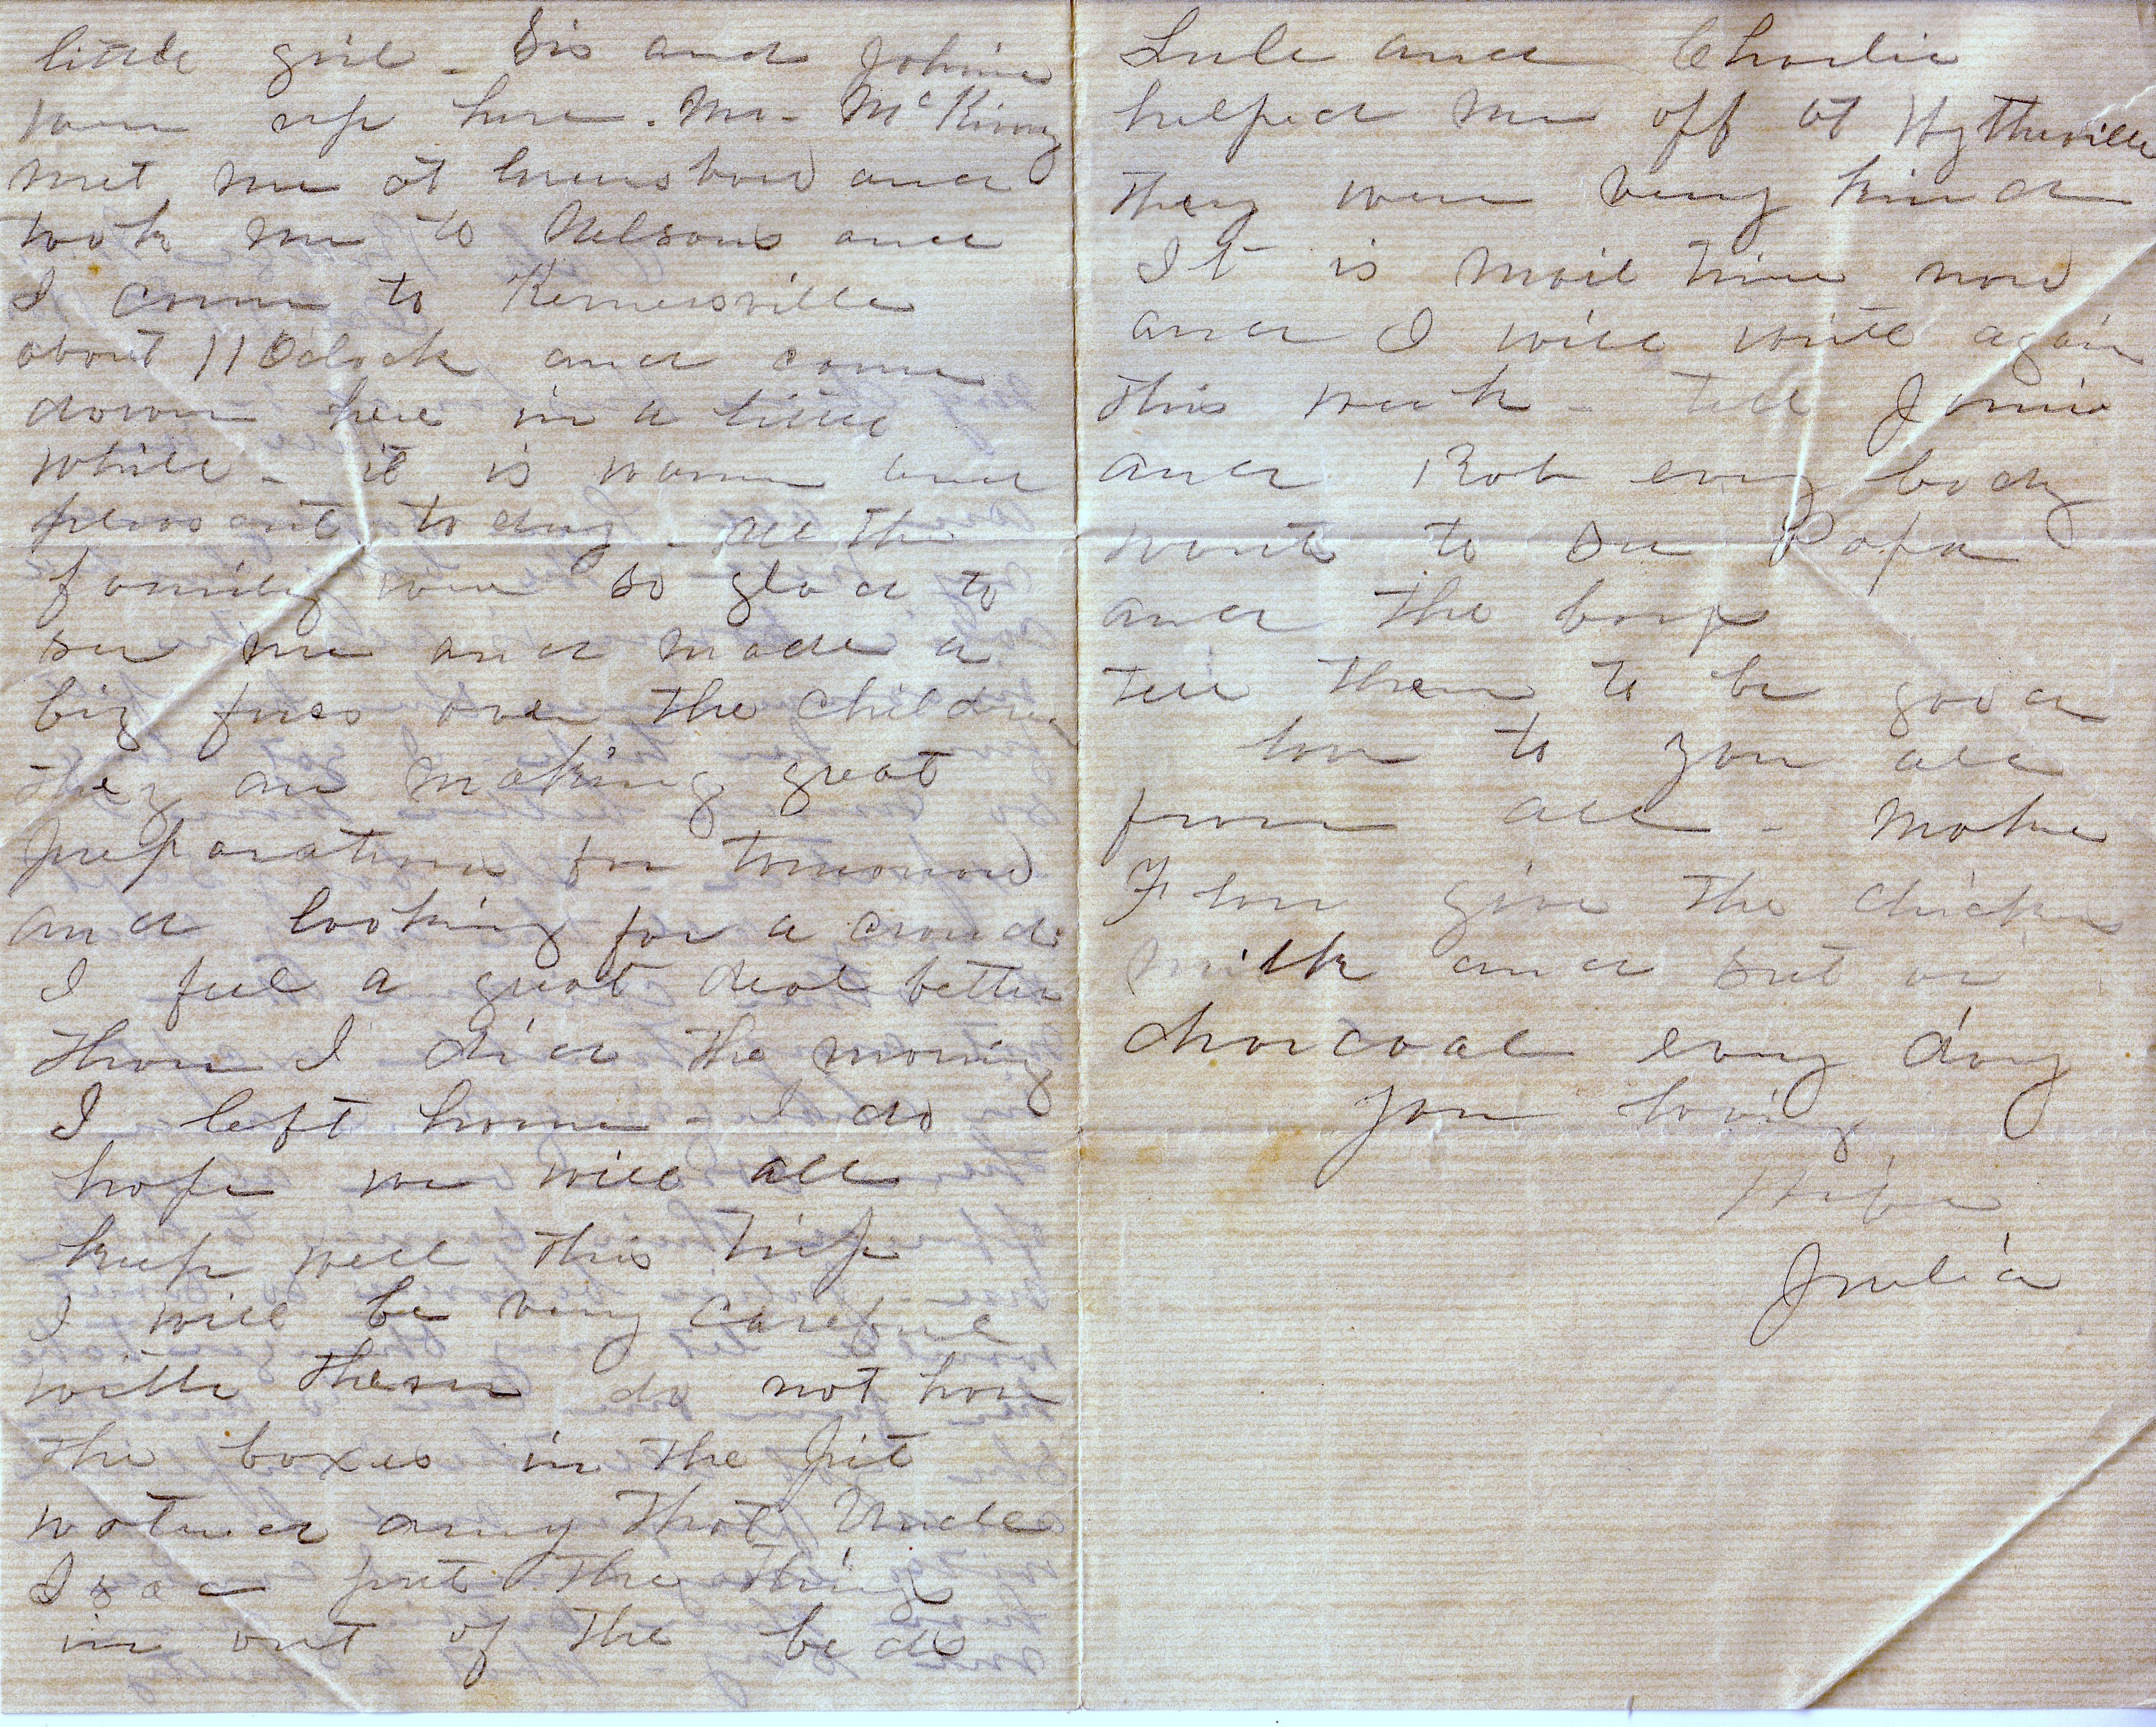 little girl - Sis and Johnie
were up here. Mr. McKinny
met me at Greensboro and
took me to Nelsons and
I come to Kernersville
about 11 Oclock and come
down here in a little
while - it is warm and
pleasant to day - all the
family were so glad to
see me and made a
big fuss over the children
they are making great
preparations for tomorrow
and looking for a crowd
I feel a great deal better
than I did the morning
I left home - I do
hope we will all
keep well this trip
I will be very careful
with them do not have
the boxes in the pit
watered any that Uncle
Isac put the things
in out of the beds
Lule and Charlie
helped me off at Wytheville
They were very kind
It is mail time now
and I will write again
this week - tell Jamie
and Rob every body
wants to see Papa
and the boys
tell them to be good
love to you all
from all - Make
Flour give the chickens
milk and
charcoal every day
your loving
Wife
Julia